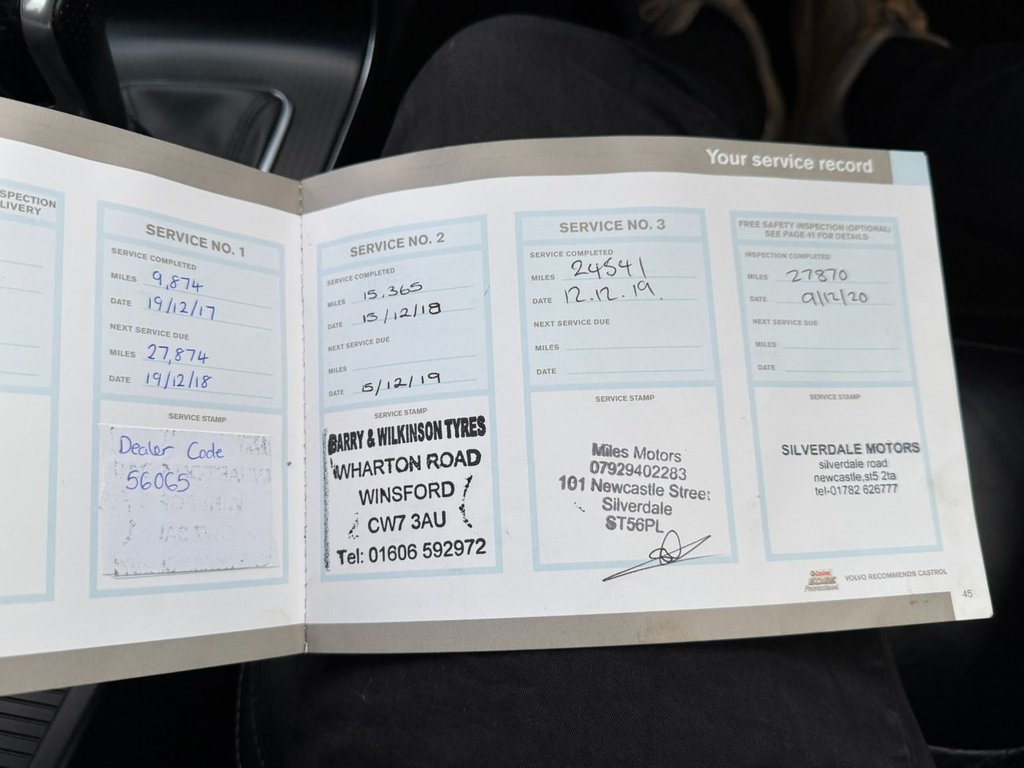 Your service record
SPECTION
LIVERY
SERVICE NO. 1
SERVICE COMPLETED
MILES 9,874
DATE 19/12/17
NEXT SERVICE DUE
MILES 27,874
DATE 19/12/18
SERVICE STAMP
Dealer Code
56065
SERVICE NO. 2
SERVICE COMPLETED
MILES 15,365
DATE 15/12/18
NEXT SERVICE DUE
MILES
DATE 15/12/19
SERVICE STAMP
BARRY & WILKINSON TYRES
WHARTON ROAD
WINSFORD
CW7 3AU
Tel: 01606 592972
SERVICE NO. 3
SERVICE COMPLETED
MILES 24541
DATE 12.12.19.
NEXT SERVICE DUE
MILES
DATE
SERVICE STAMP
Miles Motors
07929402283
101 Newcastle Street
Silverdale
ST56PL
FREE SAFETY INSPECTION (OPTIONAL)
SEE PAGE 41 FOR DETAILS
INSPECTION COMPLETED
MILES 27870
DATE 9/12/20
NEXT SERVICE DUE
MILES
DATE
SERVICE STAMP
SILVERDALE MOTORS
silverdale road
newcastle,st5 2ta
tel-01782 626777
Castrol
Professional
VOLVO RECOMMENDS CASTROL
45